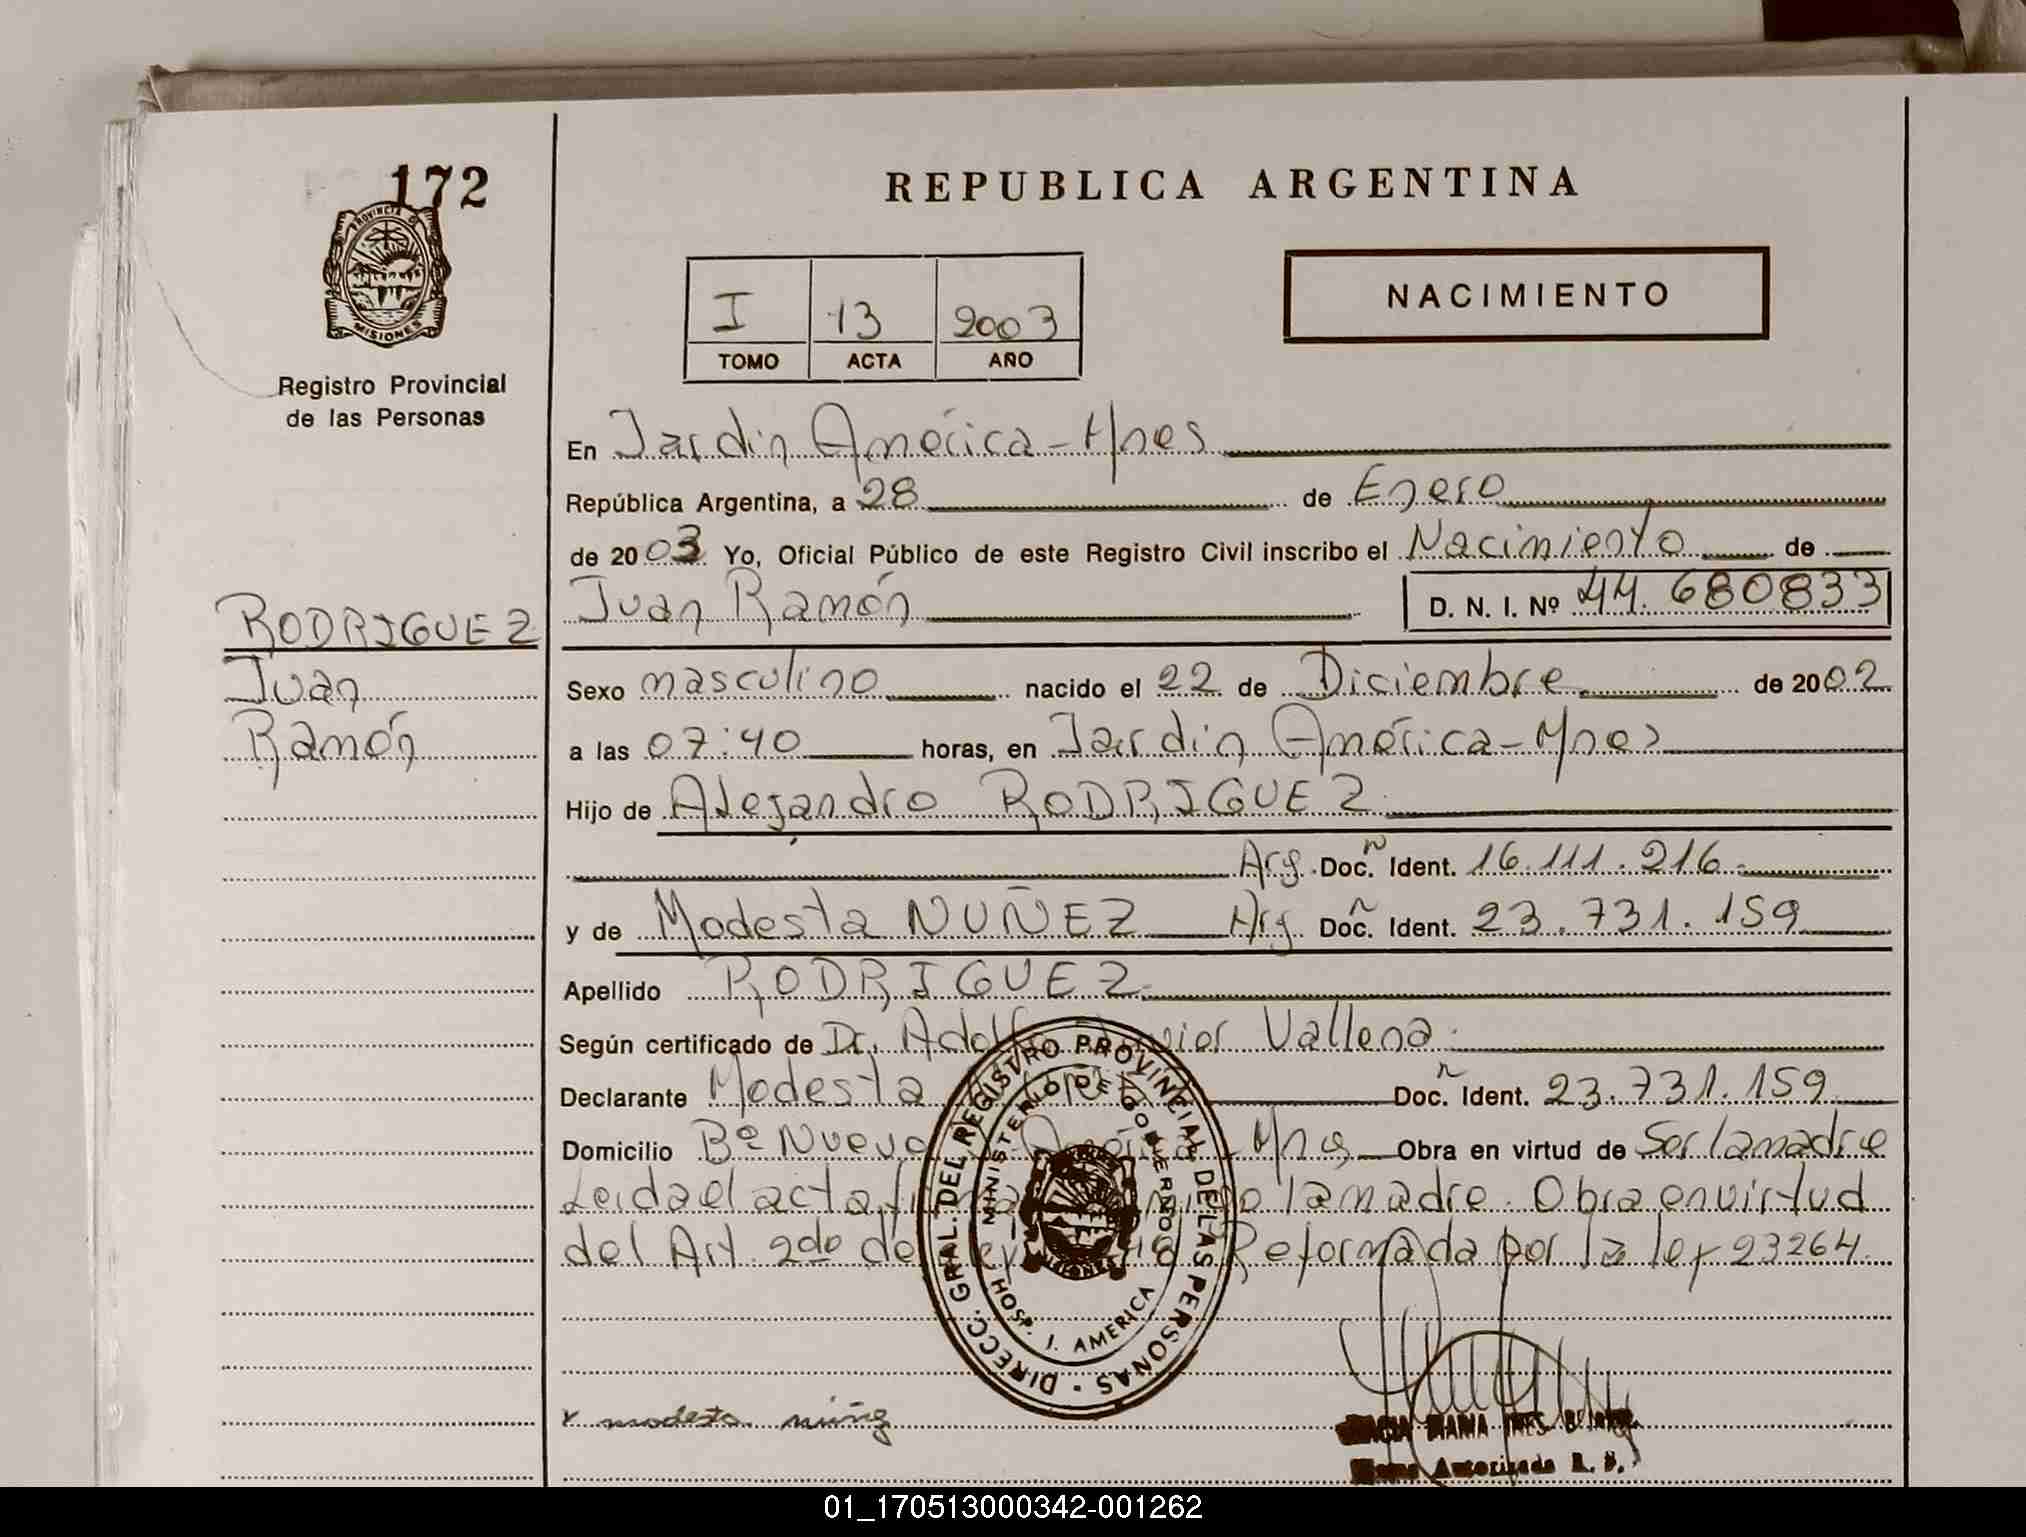 172
PROVINCIA D
MISIONES
Registro Provincial
de las Personas
REPUBLICA ARGENTINA
I 13 2003
TOMO ACTA AÑO
NACIMIENTO
En Jardin América - Mnes
República Argentina, a 28 de Enero
de 2003 Yo, Oficial Público de este Registro Civil inscribo el Nacimiento de
Juan Ramón D. N. I. Nº 44.680833
RODRIGUEZ
Juan
Ramón
Sexo masculino nacido el 22 de Diciembre de 2002
a las 07:40 horas, en Jardin América - Mnes
Hijo de Alejandro RODRIGUEZ
Arg. Doc. Ident. 16.111.216
y de Modesta NUÑEZ Arg. Doc. Ident. 23.731.159
Apellido RODRIGUEZ
Según certificado de Dr. Vallena
Declarante Modesta Doc. Ident. 23.731.159
Domicilio Bº Nuevo América - Mnes Obra en virtud de Ser la madre
Leida el acta la madre. Obra en virtud
del Art. 2do de Reformada por la ley 23264.
DIRECC. GRAL. DEL REGISTRO PROVINCIAL DE LAS PERSONAS
MINISTERIO DE GOBIERNO
HOSP. J. AMERICA
modesta núñez
MARIA INES
Autorizada R. P.
01_170513000342-001262